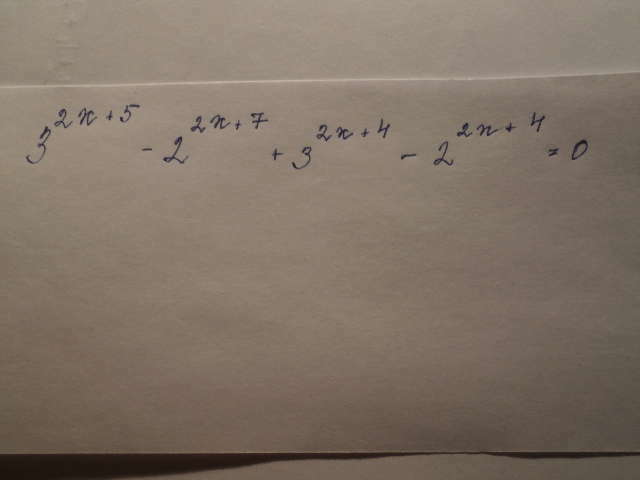 3^{2x+5} - 2^{2x+7} + 3^{2x+4} - 2^{2x+4} = 0